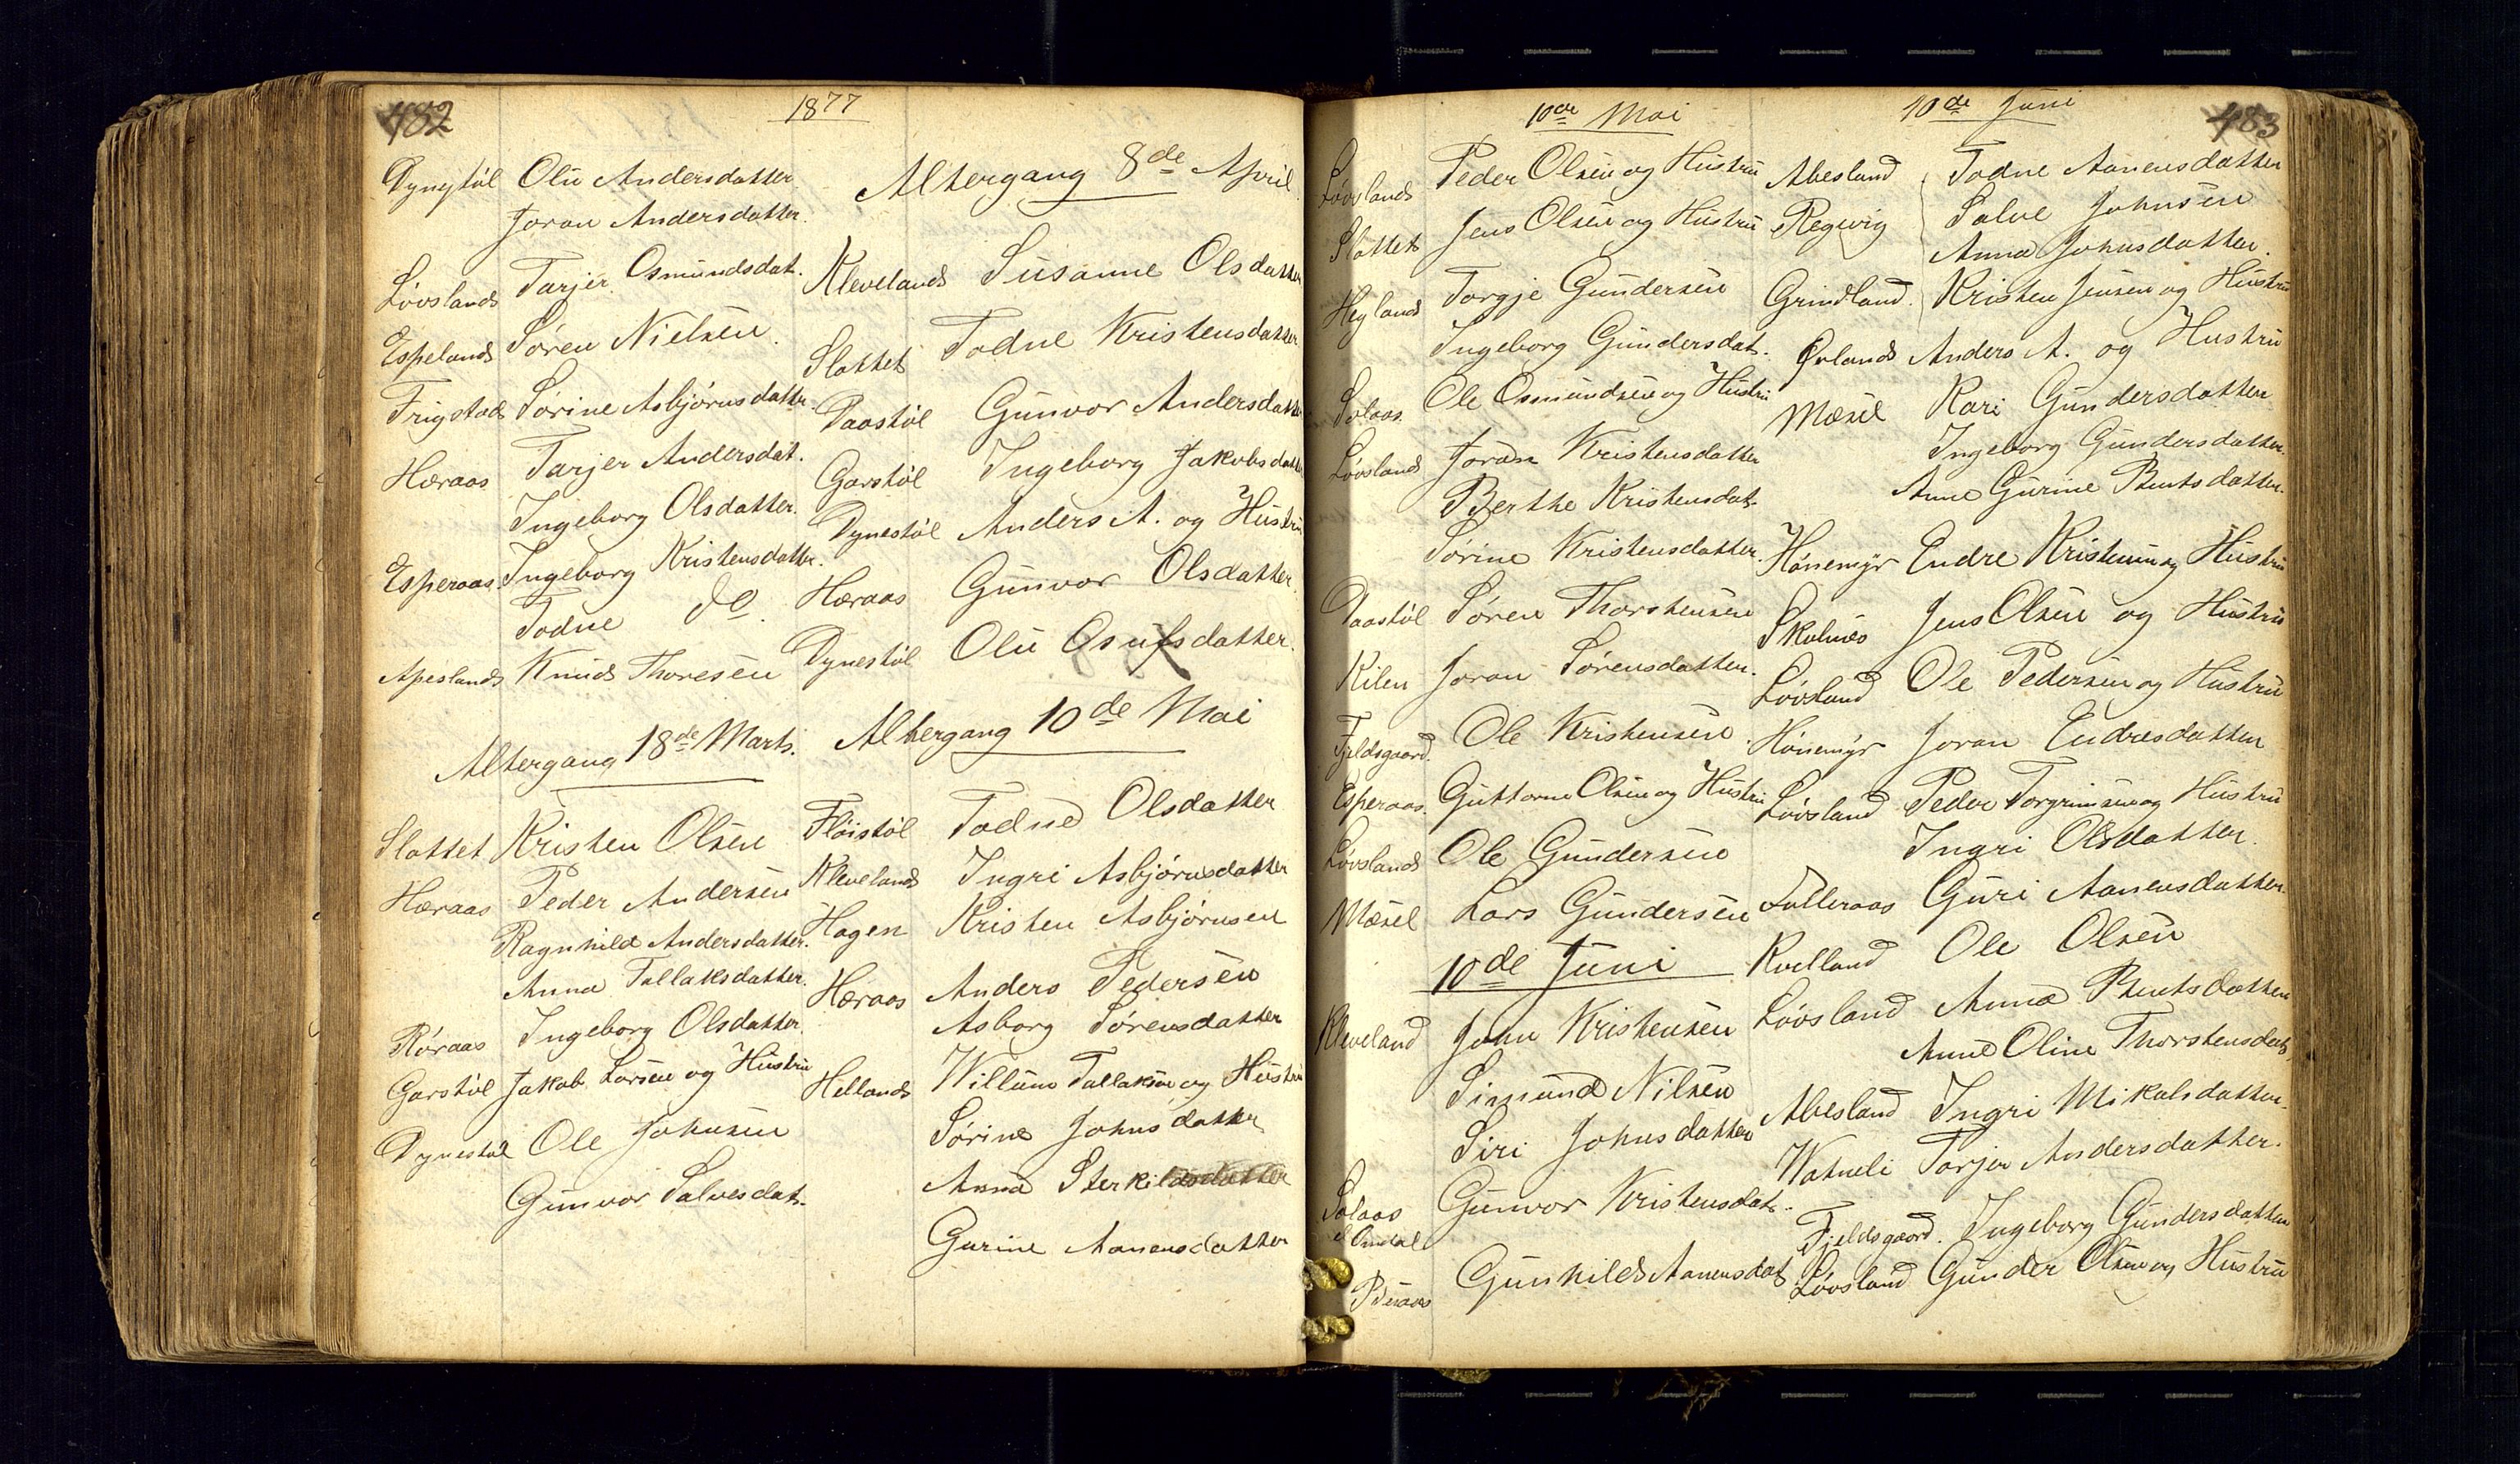 482
1877
Dynestøl Olu Andersdatter
Joran Andersdatter.
Løvsland Tarjer Osmundsdat.
Espeland Søren Nielsen.
Frigstad Sørine Asbjørnsdatter.
Høraas Tarjer Andersdat.
Ingeborg Olsdatter.
Esperaas Ingeborg Kristensdatter.
Todne do.
Apesland Knud Thoresen
Altergang 18de Marts.
Slottet Kristen Olsen
Høraas Peder Andersen
Ragnhild Andersdatter.
Anna Tallaksdatter.
Røraas Ingeborg Olsdatter.
Garstøl Jakob Larsen og Hustru
Dynestøl Ole Johnsen
Gunvor Salvesdat.
Altergang 8de April
Kleveland Susanne Olsdatter
Slottet Todne Kristensdatter
Paastøl Gunvor Andersdatter
Garstøl Ingeborg Jakobsdatter
Dynestøl Anders A. og Hustru
Høraas Gunvor Olsdatter
Dynestøl Olu Osufsdatter.
Altergang 10de Mai
Fløistøl Todne Olsdatter
Kleveland Ingri Asbjørnsdatter
Hagen Kristen Asbjørnsen
Høraas Anders Pedersen
Asborg Sørensdatter
Helland Willum Tallaksen og Hustru
Sørine Johnsdatter
Anna Sterkildsdatter
Gurine Aanensdatter
483
10de Mai
Løvsland Peder Olsen og Hustru
Slottet Jens Olsen og Hustru
Heyland Torgje Gundersen
Ingeborg Gundersdat.
Solaas Ole Osmundsen og Hustru
Løvsland Joran Kristensdatter
Berthe Kristensdat.
Sørine Kristensdatter.
Paastøl Søren Thorstensen
Kilen Joran Sørensdatter.
Fjeldsgaard. Ole Kristensen.
Esperaas. Guttorm Olsen og Hustru
Løvsland Ole Gundersen
Mæsel Lars Gundersen
10de Juni
Kleveland John Kristensen
Simund Nilsen
Siri Johnsdatter
Solaas Gunvor Kristensdat.
Gunhild Aanensdat.
10de Juni
Abesland Todne Aanensdatter
Regevig Salve Johnsen
Anna Johnsdatter.
Grindland. Kristen Jensen og Hustru
Ørland Anders A. og Hustru
Mæsel Kari Gundersdatter
Ingeborg Gundersdatter.
Anne Gurine Bentsdatter.
Hønemyr Endre Kristensen og Hustru
Skulnes Jens Olsen og Hustru
Løvsland Ole Pedersen og Hustru
Hønemyr Joran Endresdatter
Løvsland Peder Torgrimsen og Hustru
Ingri Olsdatter.
Falleraas Guri Aanensdatter.
Kvelland Ole Olsen
Løvsland Anna Bentsdatter
Anne Oline Thorstensdat.
Abesland Ingri Mikalsdatter.
Watneli Tarjer Andersdatter.
Fjeldsgaard. Ingeborg Gundersdatter
Løvsland Gunder Olsen og Hustru